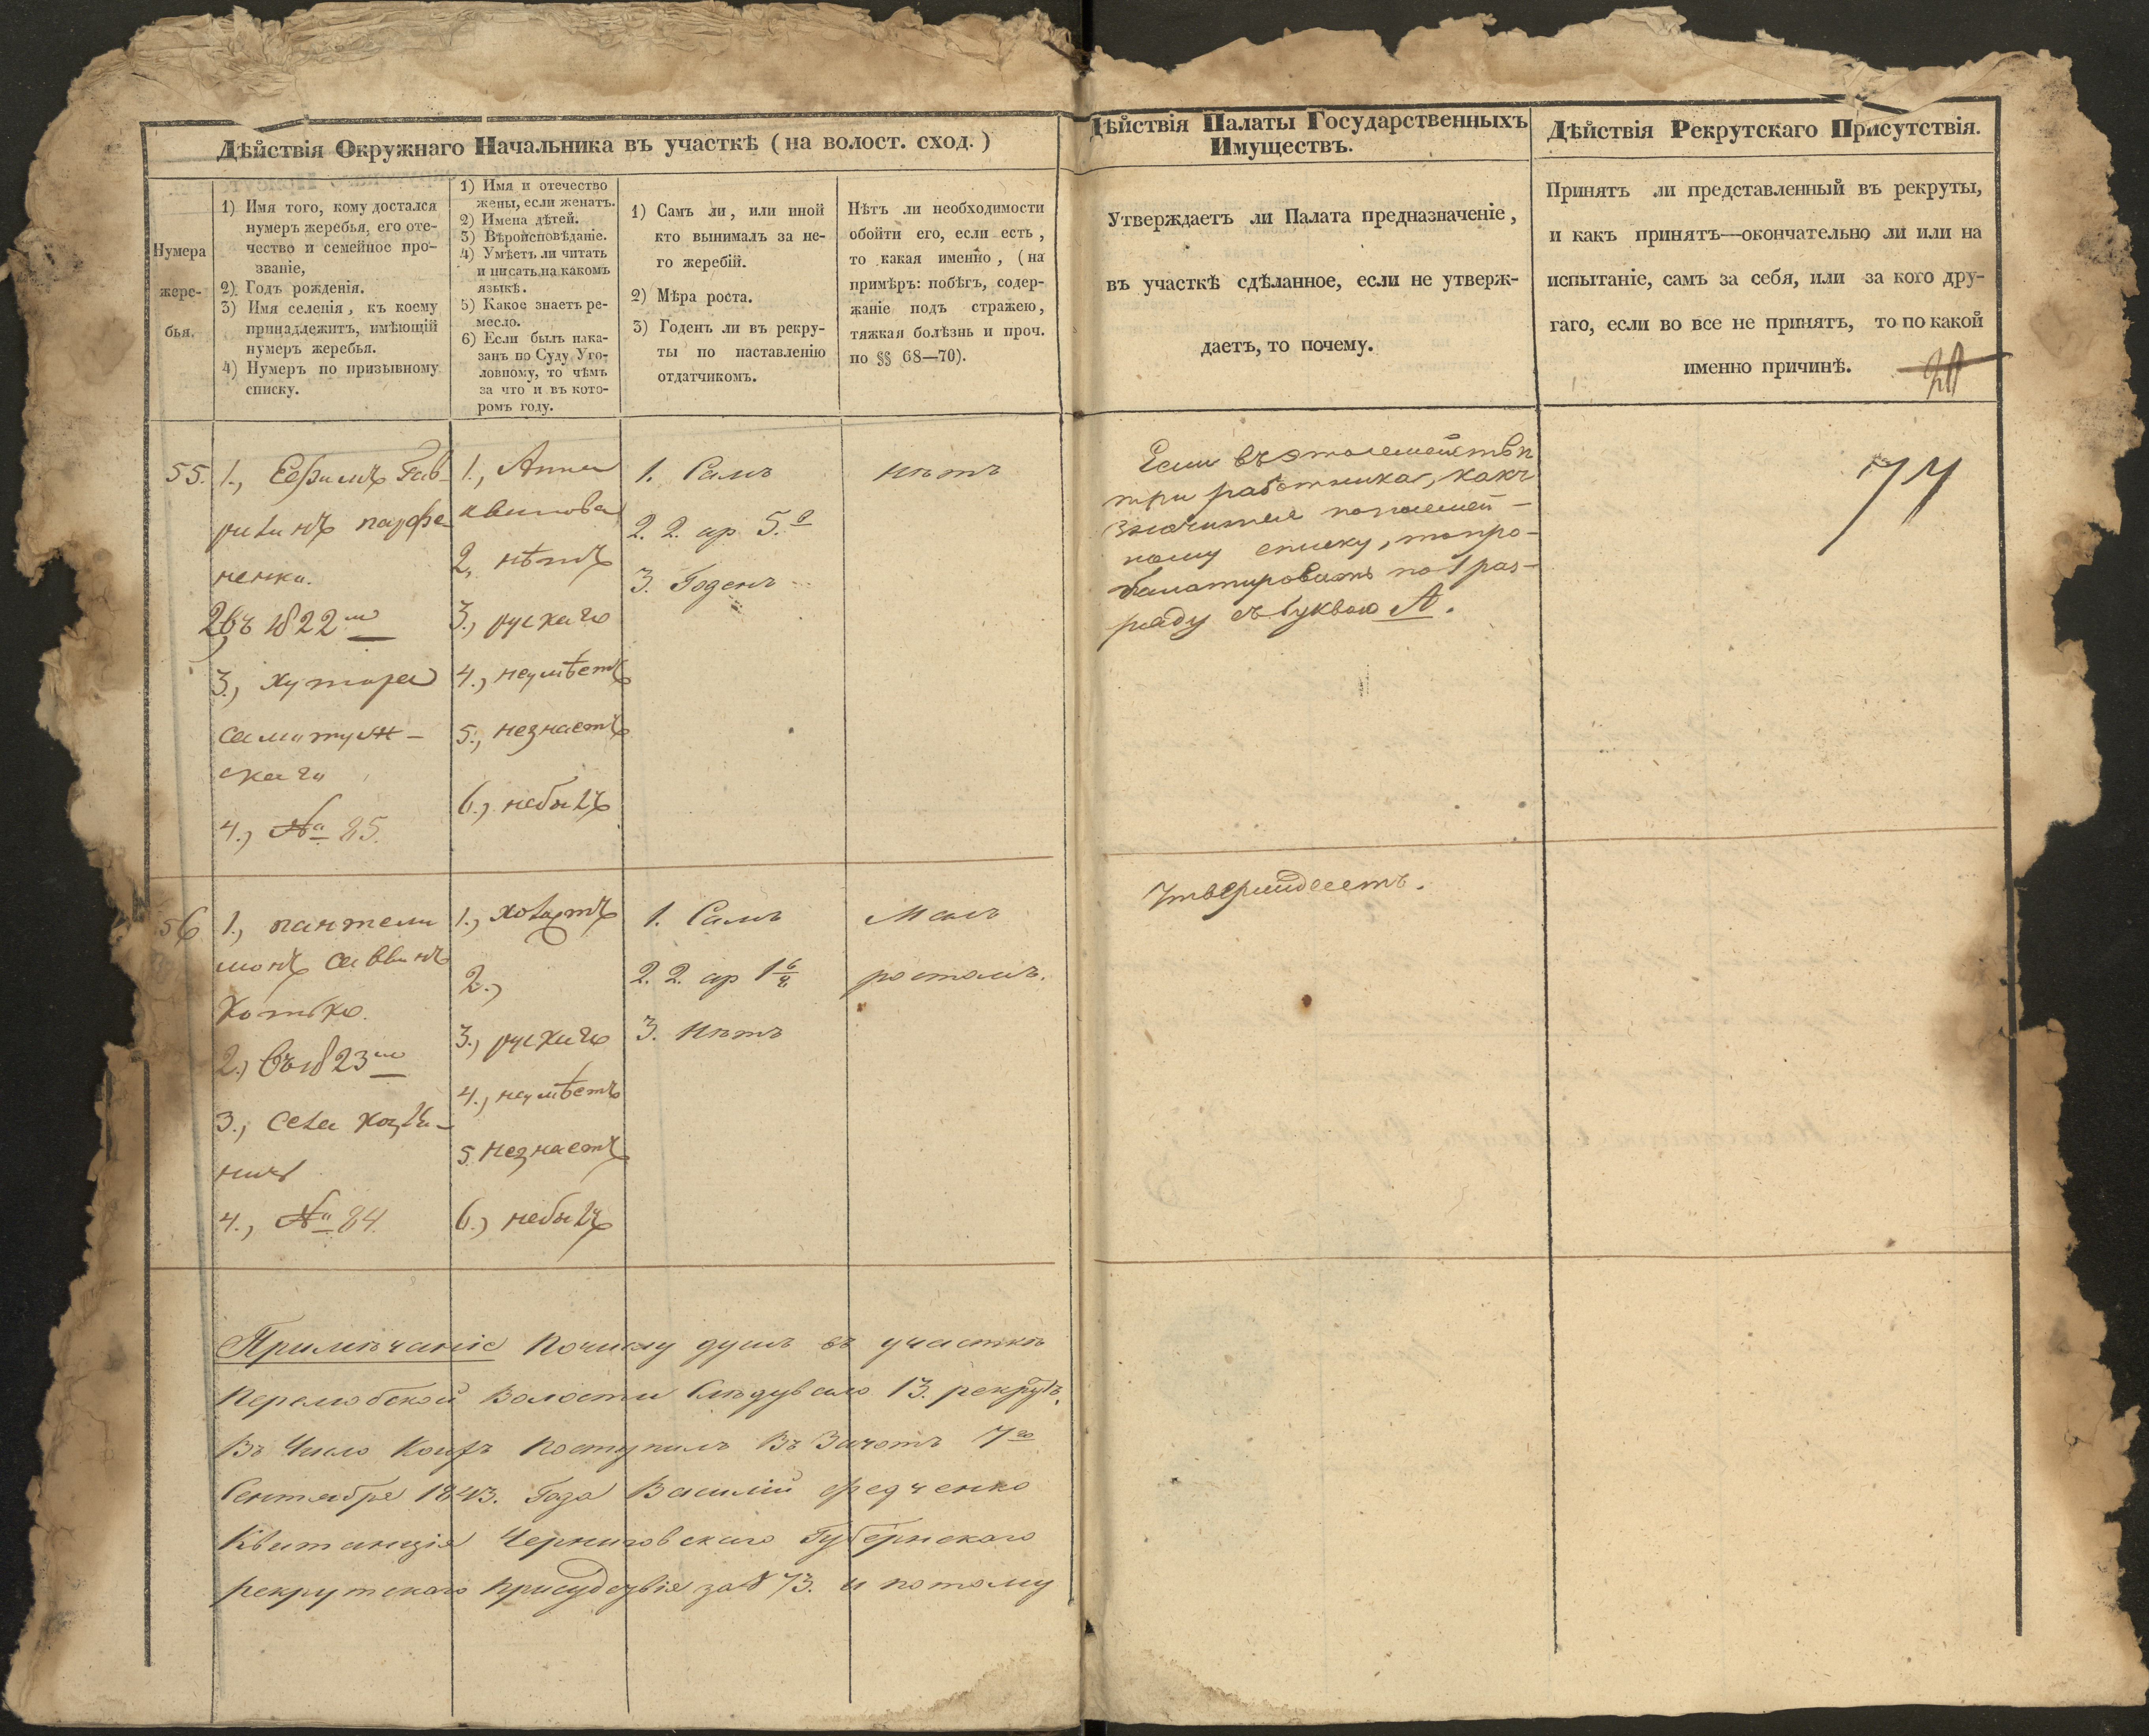 Дѣйствія Окружнаго Начальника въ участкѣ (на волост. сход.)
Нумера
жере-
бья.
1) Имя того, кому достался
нумеръ жеребья, его оте-
чество и семейное про-
званіе,
2) Годъ рожденія.
3) Имя селенія, къ коему
принадлежитъ, имѣющій
нумеръ жеребья.
4) Нумеръ по призывному
списку.
1) Имя и отечество
жены, если женатъ.
2) Имена дѣтей.
3) Вѣроисповѣданіе.
4) Умѣетъ ли читать
и писать на какомъ
языкѣ.
5) Какое знаетъ ре-
месло.
6) Если былъ нака-
занъ по Суду Уго-
ловному, то чѣмъ
за что и въ кото-
ромъ году.
1) Самъ ли, или иной
кто вынималъ за не-
го жеребій.
2) Мѣра роста.
3) Годенъ ли въ рекру-
ты по наставленію
отдатчикомъ.
Нѣтъ ли необходимости
обойти его, если есть,
то какая именно, (на
примѣръ: побѣгъ, содер-
жаніе подъ стражею,
тяжкая болѣзнь и проч.
по §§ 68—70).
55.
1., Ефимъ Гав-
риловъ парфе
ненко.
2, въ 1822 мъ
3., хутора
4., № 85.
1., Анна
2, нѣтъ
3., рускаго
4., неумѣетъ
5., незнаетъ
6., небылъ
1. Самъ
2. 2. ар. 5. в
3. Годенъ
нѣтъ
56
1., пантели
монъ саввинъ
Котько.
2., въ 1823 мъ
3., села
4., № 84.
1., холостъ
2.,
3., рускаго
4., неумѣетъ
5. незнаетъ
6., небылъ
1. Самъ
2. 2. ар 1 6/8
3. Нѣтъ
Малъ
ростомъ.
Примѣчаніе Почислу душъ въ участкѣ
Перелюбской Волости Слѣдувало 13. рекрутъ.
Въ Число Коихъ Поступилъ Въ Зачотъ 7го
Сентября 1843. Года Василій Федченко
Квитанція Черниговскаго Губернскаго
рекрутскаго присудствія за № 73. и потому
Дѣйствія Палаты Государственныхъ
Имуществъ.
Утверждаетъ ли Палата предназначеніе,
въ участкѣ сдѣланное, если не утверж-
даетъ, то почему.
Если въ этомъ семействѣ
три работника, какъ
значится по посемей-
ному списку, то про-
балатировать по 1 раз-
ряду съ буквою А.
Утверждаетъ.
Дѣйствія Рекрутскаго Присутствія.
Принятъ ли представленный въ рекруты,
и какъ принятъ—окончательно ли или на
испытаніе, самъ за себя, или за кого дру-
гаго, если во все не принятъ, то по какой
именно причинѣ.